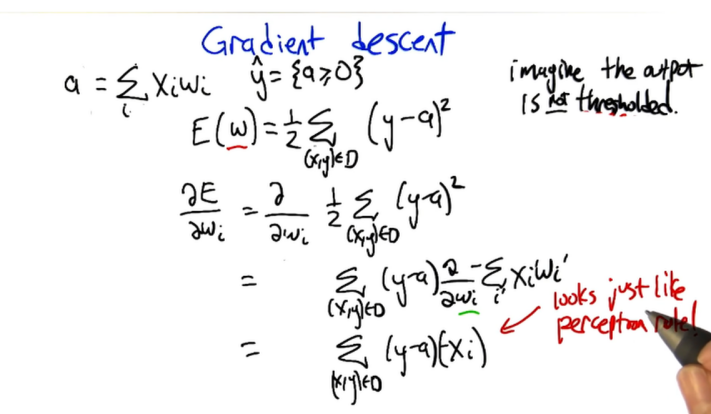 Gradient descent
a = ∑_i x_i w_i   ŷ = {a ≥ 0}
imagine the output
is not thresholded.
E(w) = 1/2 ∑_{(x,y)∈D} (y-a)^2
∂E/∂w_i = ∂/∂w_i 1/2 ∑_{(x,y)∈D} (y-a)^2
= ∑_{(x,y)∈D} (y-a) ∂/∂w_i -∑_{i'} x_i w_i'
looks just like
perceptron rule!
= ∑_{(x,y)∈D} (y-a)(-x_i)